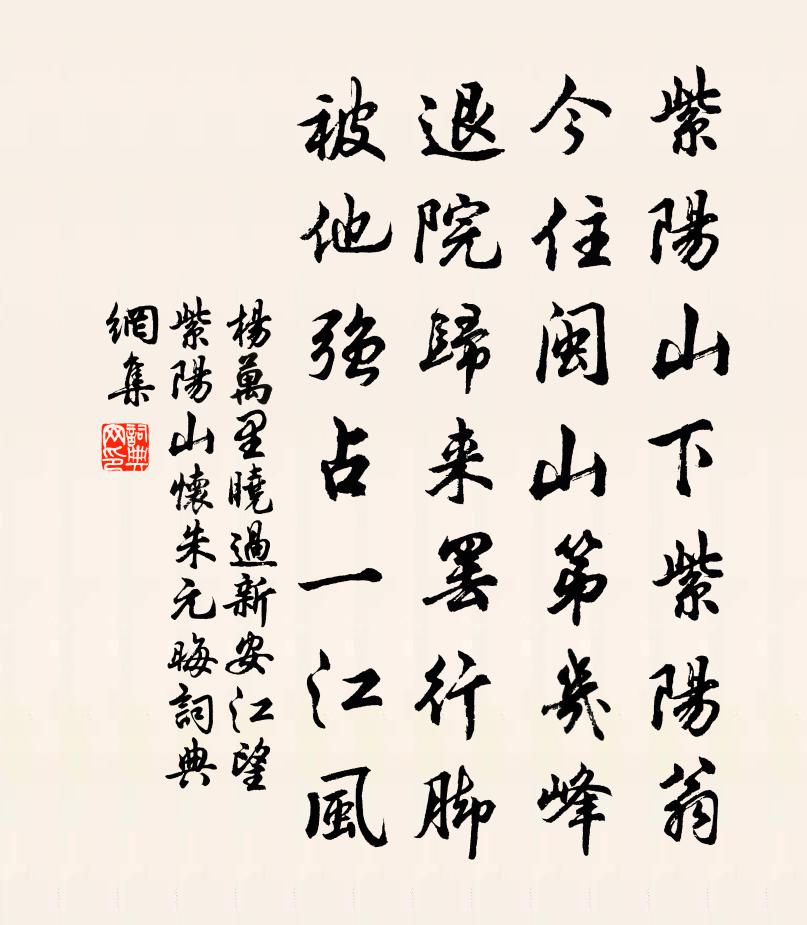 紫陽山下紫陽翁
今住閩山第幾峰
退院歸来罢行脚
被他強占一江風
楊萬里曉過新安江望
紫陽山懷朱元晦詞典
網集
詞典
网印